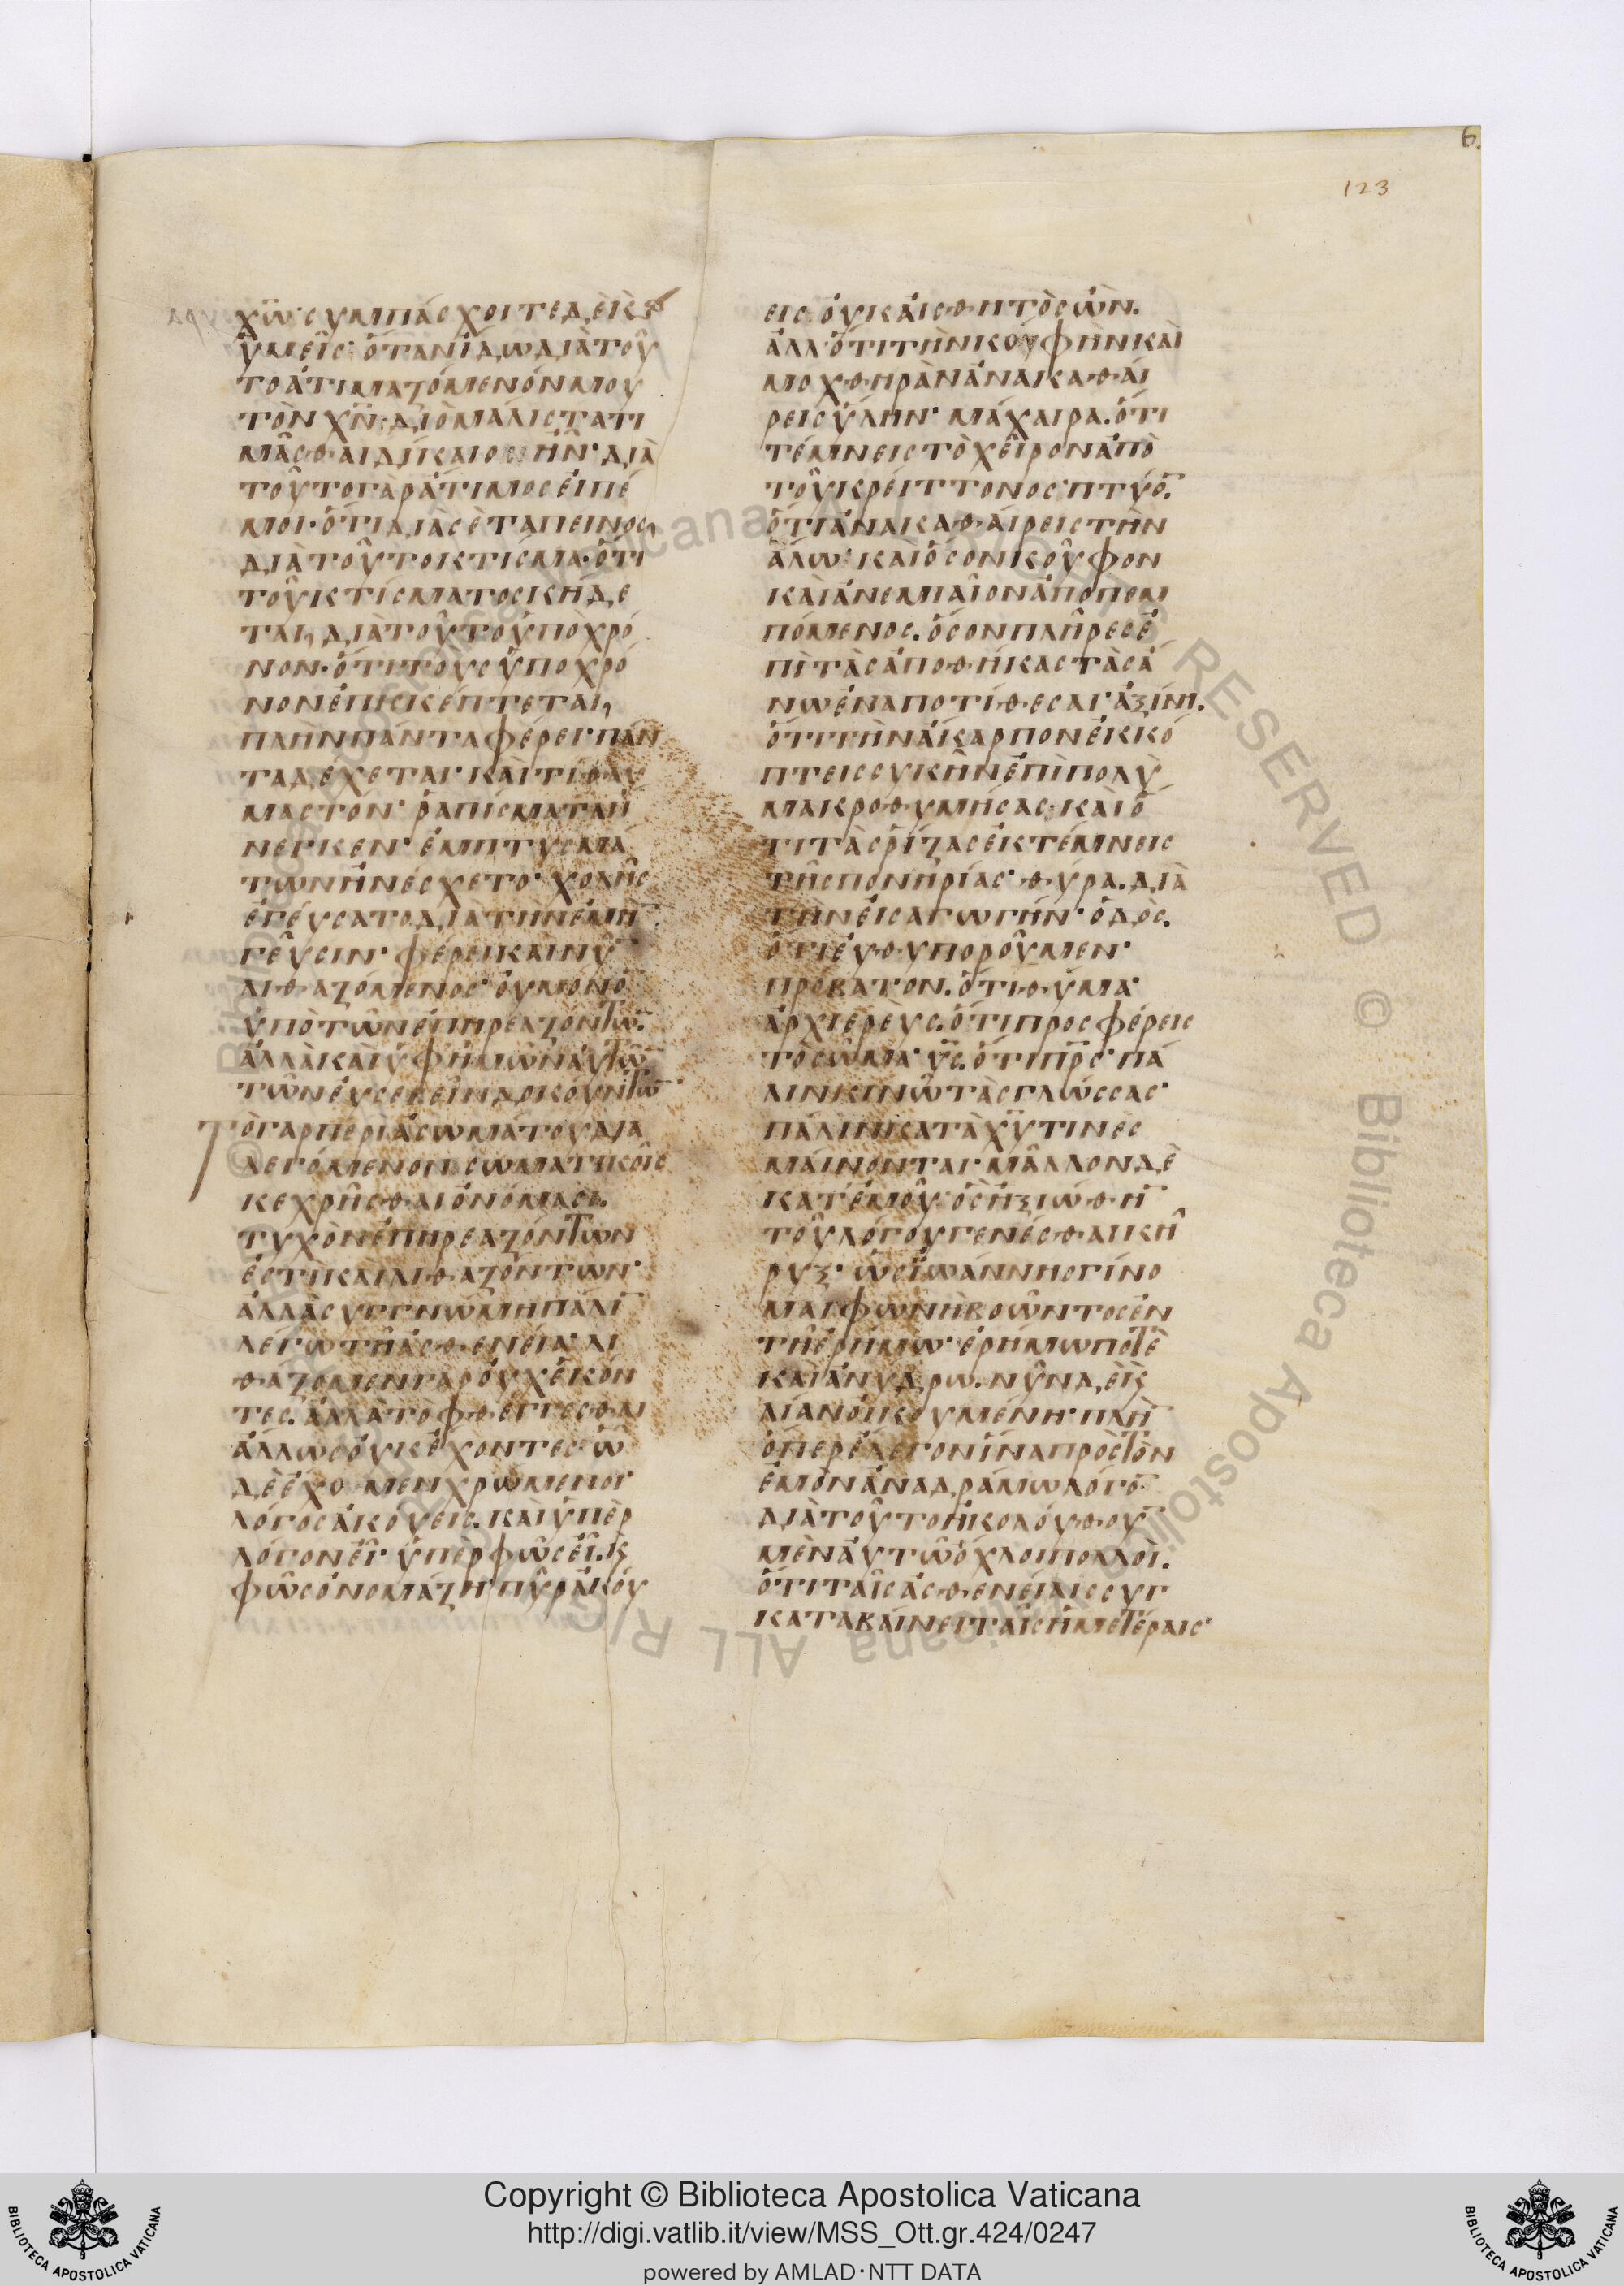 6.
123
χω̅· συμπάσχοιτε δὲ κ
ὑμεῖς· ὅταν ἴδω διὰ τοῦ
το ἀτιμαζόμενόν μου
τὸν χν̅· διὸ μάλιστα τι
μᾶσθαι δίκαιος ἦν· διὰ
τοῦτο γὰρ ἄτιμος εἰπέ
μοι· ὅτι διὰ σὲ ταπεινός,
διὰ τοῦτο κτίσμα· ὅτι
τοῦ κτίσματος κήδε
ται, διὰ τοῦτο ὑπὸ χρό
νον· ὅτι τοὺς ὑπὸ χρό
νον ἐπισκέπτεται,
πλὴν πάντα φέρει· πάν
τα δέχεται· καὶ τί θαυ
μαστόν· ῥαπίσματα ἤ
νεγκεν· ἐμπτυσμά
των ἠνέσχετο· χολῆς
ἐγεύσατο διὰ τὴν ἐμὴ̅
γεῦσιν· φέρει καὶ νῦ̅
λιθαζόμενος· οὐ μόνο̅
ὑπὸ τῶν ἐπηρεαζόντω̅·
ἀλλὰ καὶ ὑφ' ἡμῶν αὐτῶ̅
τῶν εὐσεβεῖν δοκούντω̅·
Τὸ γὰρ περὶ ἀσωμάτου δια
λεγόμενον σωματικοῖς
κεχρῆσθαι ὀνόμασι.
τυχὸν ἐπηρεαζόντων
ἐστὶ καὶ λιθαζόντων·
ἀλλὰ συγγνώμη πάλι̅
λέγω τῇ ἀσθενείᾳ· λι
θάζομεν γὰρ οὐχ ἑκόν
τες. ἀλλὰ τὸ φθέγγεσθαι
ἄλλως οὐκ ἔχοντες· ὧ
δὲ ἔχομεν χρώμενοι·
λόγος ἀκούεις. καὶ ὑπὲρ
λόγον εἶ· ὑπὲρ φῶς εἶ. κ
φῶς ὀνομάζῃ· πῦρ ἀκού
εις· οὐκ αἰσθητὸς ὤν.
ἀλλ' ὅτι τὴν κούφην καὶ
μοχθηρὰν ἀνακαθαί
ρεις ὕλην· μάχαιρα. ὅτι
τέμνεις τὸ χεῖρον ἀπὸ
τοῦ κρείττονος· πτύο̅.
ὅτι ἀνακαθαίρεις τὴν
ἅλω· καὶ ὅσον κοῦφον
καὶ ἀνεμιαῖον ἀποπεμ
πόμενος. ὅσον πλῆρες ἐ
πὶ τὰς ἀποθήκας τὰς ἄ
νω ἐναποτίθεσαι· ἀξίνη.
ὅτι τὴν ἄκαρπον ἐκκό
πτεις συκῆν ἐπὶ πολὺ
μακροθυμήσας· καὶ ὅ
τι τὰς ῥίζας ἐκτέμνεις
τῆς πονηρίας· θύρα. διὰ
τὴν εἰσαγωγήν· ὁδός.
ὅτι εὐθυποροῦμεν·
πρόβατον. ὅτι θῦμα·
ἀρχιερεύς. ὅτι προσφέρεις
τὸ σῶμα· υς̅. ὅτι πρς̅· πά
λιν κινῶ τὰς γλώσσας·
πάλιν κατὰ χυ̅ τινὲς
μαίνονται· μᾶλλον δὲ
κατ' ἐμοῦ· ὃς ἠξιώθη̅
τοῦ λόγου γενέσθαι κή
ρυξ· ὡς ἰωάννης γίνο
μαι φωνὴ βοῶντος ἐν
τῇ ἐρήμῳ· ἐρήμῳ ποτὲ
καὶ ἀνύδρῳ. νῦν δὲ κ
λίαν οἰκουμένῃ· πλὴ̅
ὅπερ ἔλεγον ἵνα πρὸς τὸν
ἐμὸν ἀναδράμω λόγο̅·
διὰ τοῦτο ἠκολούθου̅
μὲν αὐτῷ ὄχλοι πολλοί.
ὅτι ταῖς ἀσθενείαις συγ
καταβαίνει ταῖς ἡμετέραις·
Copyright © Biblioteca Apostolica Vaticana
http://digi.vatlib.it/view/MSS_Ott.gr.424/0247
powered by AMLAD·NTT DATA
BIBLIOTECA APOSTOLICA VATICANA
BIBLIOTECA APOSTOLICA VATICANA